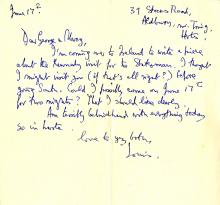 June 12th
39 Stocks Road,
Aldbury, nr. Tring,
Herts
Dear George & Mercy,
I'm coming over to Ireland to write a piece
about the Kennedy visit for the Statesman. I thought
I might visit you (if that's all right?) before
going South. Could I possibly come on June 17th
for two nights? That I should love dearly.
Am terribly behindhand with everything today
so in haste
love to you both,
Louis.